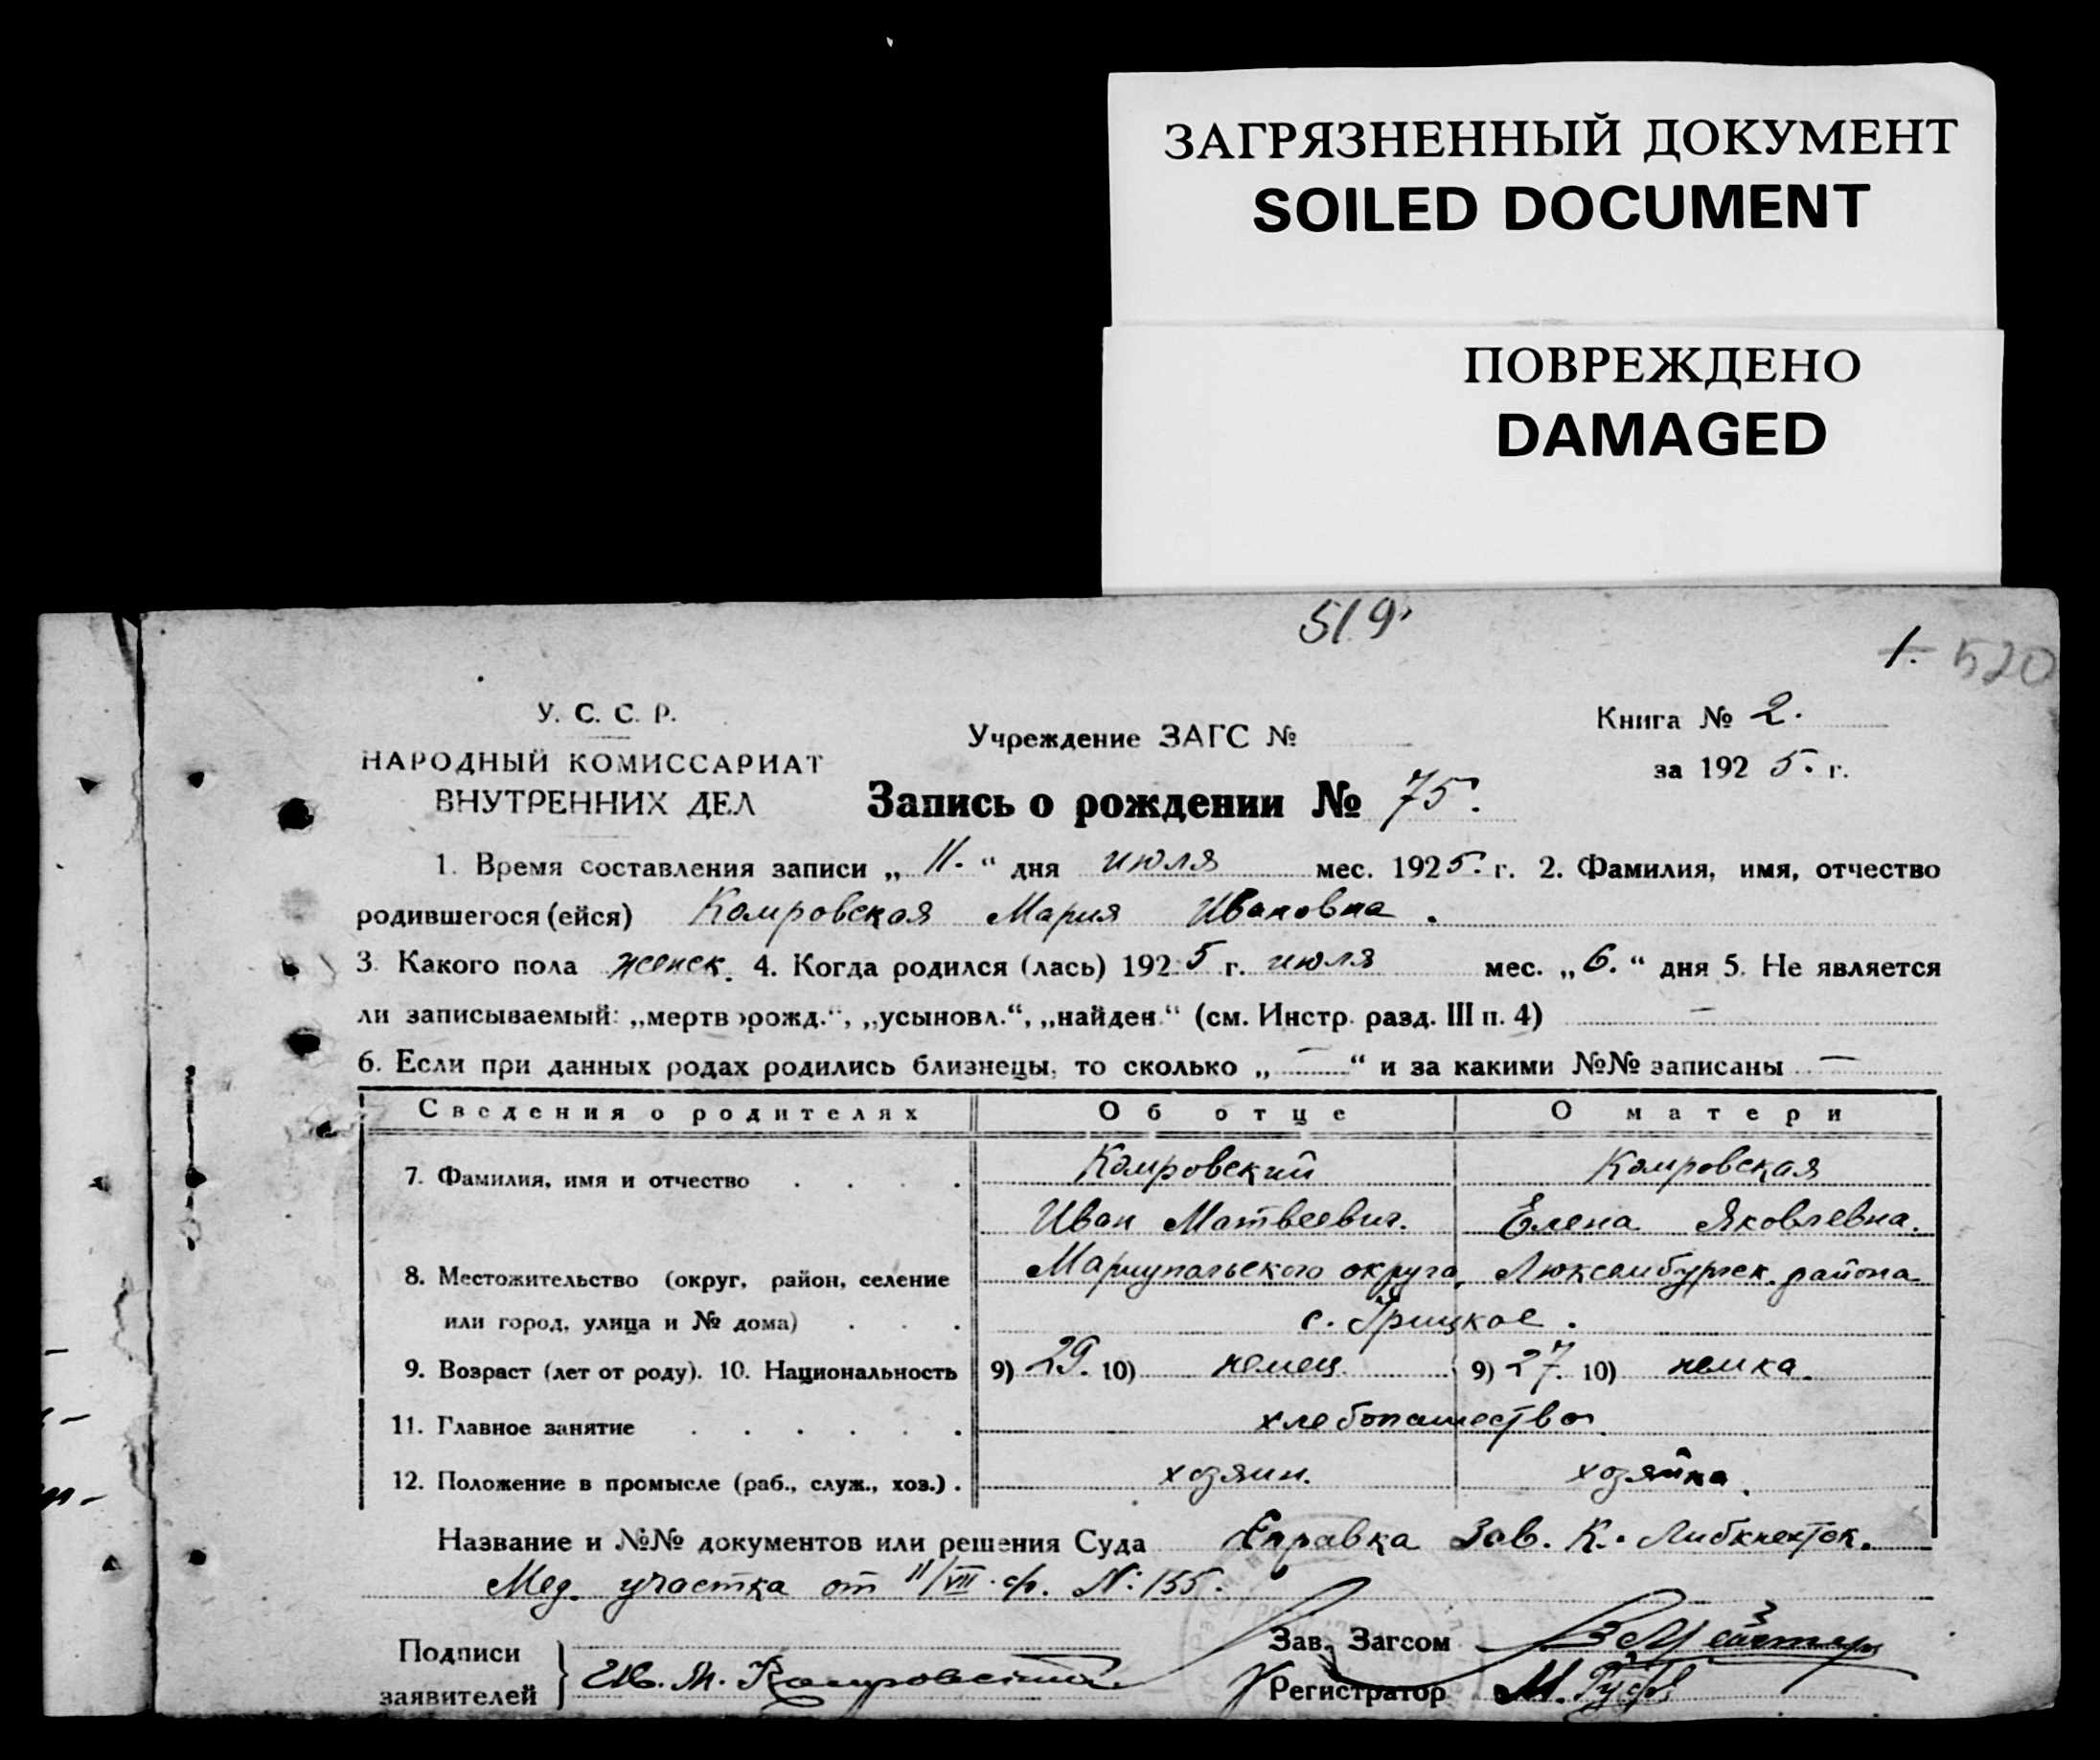 ЗАГРЯЗНЕННЫЙ ДОКУМЕНТ
SOILED DOCUMENT
ПОВРЕЖДЕНО
DAMAGED
519.
1. 520
У. С. С. Р.
НАРОДНЫЙ КОМИССАРИАТ
ВНУТРЕННИХ ДЕЛ
Учреждение ЗАГС №
Книга № 2.
за 1925. г.
Запись о рождении № 75.
1. Время составления записи „11.“ дня июля мес. 1925. г. 2. Фамилия, имя, отчество
родившегося (ейся) Комровская Мария Ивановна.
3. Какого пола женск. 4. Когда родился (лась) 1925 г. июля мес. „6.“ дня 5. Не является
ли записываемый: „мертворожд.“, „усыновл.“, „найден.“ (см. Инстр. разд. III п. 4) —
6. Если при данных родах родились близнецы, то сколько „—“ и за какими №№ записаны —
Сведения о родителях Об отце О матери
7. Фамилия, имя и отчество . . . . Комровский Комровская
Иван Матвеевич. Елена Яковлевна.
8. Местожительство (округ, район, селение Мариупольского округа, Люксембургск. района
или город, улица и № дома) . . . с. Грицкое.
9. Возраст (лет от роду). 10. Национальность 9) 29. 10) немец. 9) 27. 10) немка.
11. Главное занятие . . . . . . хлебопашество
12. Положение в промысле (раб., служ., хоз.) . хозяин. хозяйка.
Название и №№ документов или решения Суда Справка Зав. К. Либкнехток.
Мед. участка от 11/VII с/г. №: 155.
Подписи
заявителей
Ив. М. Комровский
Зав. Загсом
Регистратор М.